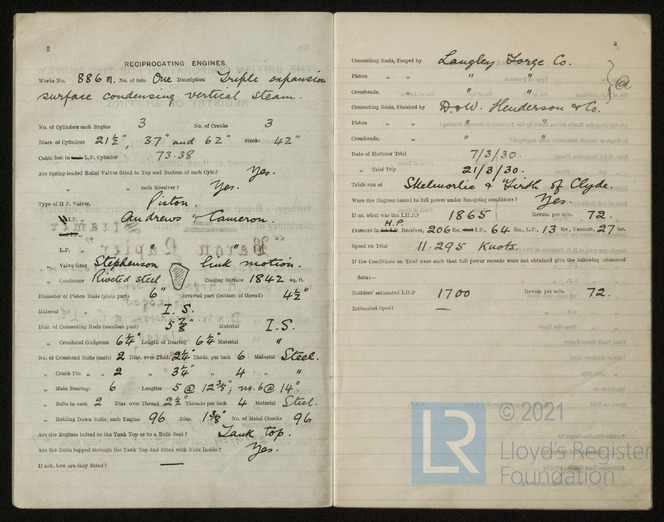 2
RECIPROCATING ENGINES.
Works No. 886 M, No. of Sets One Description Triple expansion
surface condensing vertical steam.
No. of Cylinders each Engine 3 No. of Cranks 3
Diars. of Cylinders 21½", 37" and 62" Stroke 42"
Cubic feet in each L.P. Cylinder 73.38
Are Spring-loaded Relief Valves fitted to Top and Bottom of each Cylr.? Yes.
" " each Receiver? Yes.
Type of H.P. Valves, Piston
" L.P. " Andrews & Cameron.
L.P. " " "
" Valve Gear Stephenson link motion.
" Condenser Riveted steel Cooling Surface 1842 sq. ft.
Diameter of Piston Rods (plain part) 6" Screwed part (bottom of thread) 4½"
Material I.S.
Diar. of Connecting Rods (smallest part) Material I.S.
" Crosshead Gudgeons 6¼" Length of Bearing 6¾" Material "
No. of Crosshead Bolts (each) 2 Diar. over Thrd. 2¼" Thrds. per inch 6 Material Steel.
" Crank Pin " " 2 " 3¼" " 4 " "
" Main Bearings 6 Lengths 5 @ 12⅜"; no. 6 @ 14".
" Bolts in each 2 Diar. over Thread 2½" Threads per inch 4 Material Steel.
" Holding Down Bolts, each Engine 96 Diar. 1⅜" No. of Metal Chocks 96
Are the Engines bolted to the Tank Top or to a Built Seat? Tank top.
Are the Bolts tapped through the Tank Top and fitted with Nuts Inside? Yes.
If not, how are they fitted? —
3
Connecting Rods, Forged by Langley Forge Co.
Piston " " " "
Crossheads, " "
Connecting Rods, Finished by D. & W. Henderson & Co.
Piston " " " "
Crossheads, " " "
Date of Harbour Trial 7/3/30.
" Trial Trip 21/3/30.
Trials run at Skelmorlie & Firth of Clyde.
Were the Engines tested to full power under Sea-going conditions? Yes.
If so, what was the I.H.P.? 1865 Revols. per min. 72.
Pressure in H.P. Receiver, 206 lbs., I.P. 64 lbs., L.P. 13 lbs., Vacuum 27 ins.
Speed on Trial 11.295 Knots.
If the Conditions on Trial were such that full power records were not obtained give the following estimated
data:—
Builders' estimated I.H.P. 1700 Revols. per min. 72.
Estimated Speed —
© 2021
LR
Lloyd's Register
Foundation